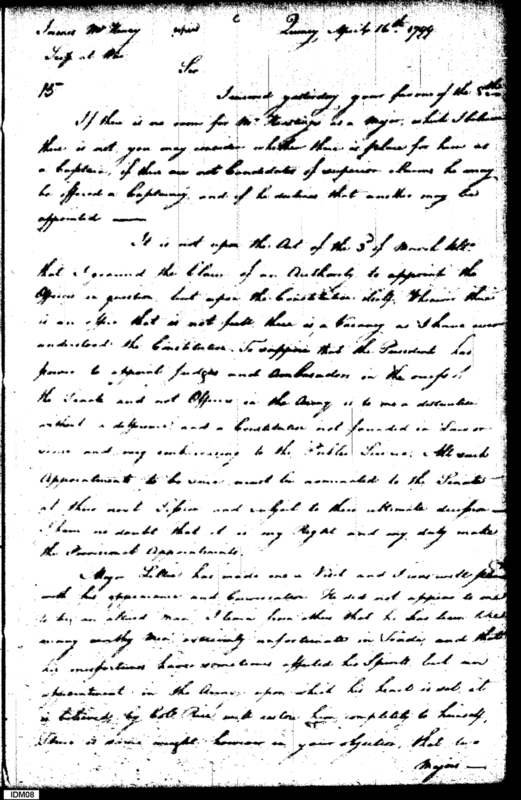 James McHenry c Quincy, April 16th. 1799
Secy at War
Sir
15 I received yesterday your favour of the 8th
If there is no room for Mr Hastings as a Major, which I believe
there is not, you may consider whether there is place for him as
a Captain, if there are not Candidates of superior Claims he may
be offered a Captaincy, and if he declines that another may be
appointed
It is not upon the Act of the 3d of March
that I ground the Claim of an Authority to appoint the
Officers in question but upon the Constitution itself. Whenever there
is an office that is not full there is a Vacancy as I have ever
understood the Constitution. To suppose that the President has
power to appoint Judges and Ambassadors in the recess of
the Senate and not Officers in the Army is to me a distinction
without a difference and a Constitution not founded in Law or
sense and very embarrassing to the Public Service. All such
Appointments to be sure must be nominated to the Senate
at their next Session and subject to their ultimate decision
I have no doubt that it is my Right and my duty make
the Provisional Appointments.
Major has made me a Visit and I was well pleased
with his appearance and Conversation. He did not appear to me
to be an man. I learn from others that he has been like
many worthy Men extremely unfortunate in Trade, and that
his misfortunes have sometimes affected his Spirits, but an
appointment in the Army upon which his heart is set, it
is believed by Coll Rice will restore him completely to himself,
There is some humour in your objection, that two
Majors
IDM08